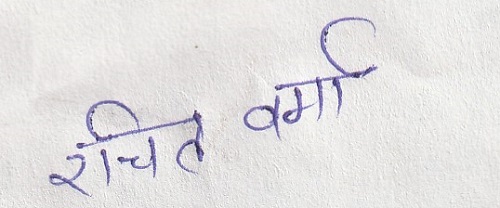 रचित वर्मा